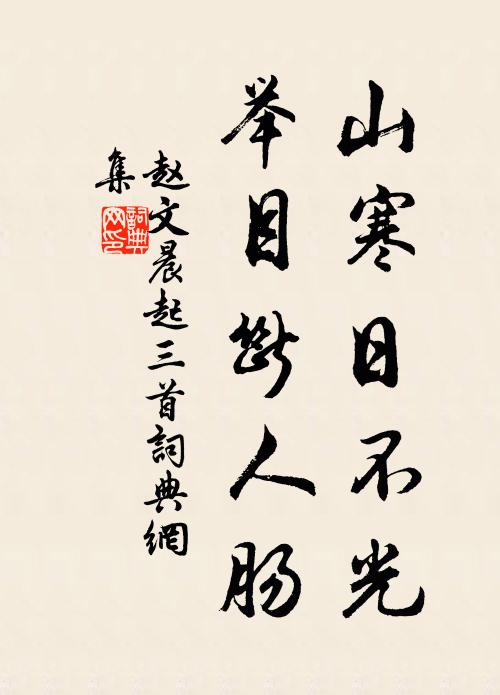 山寒日不光
举目断人肠
赵文晨起三首詞典網
集
詞典
网印